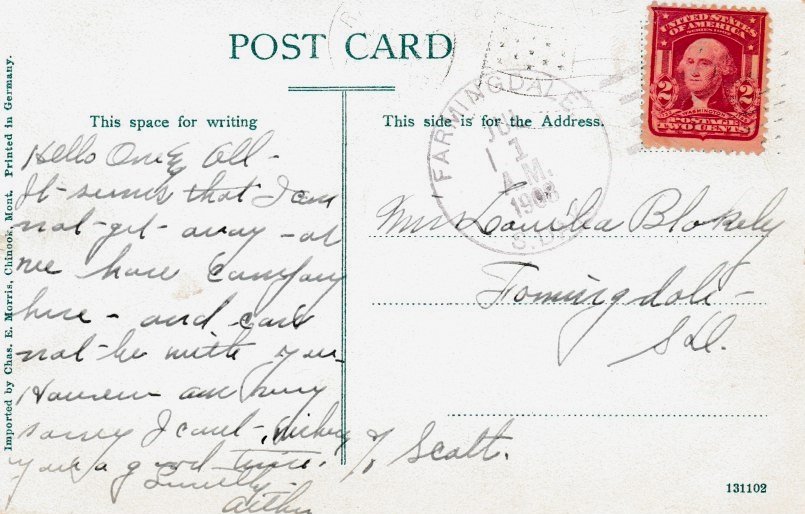 POST CARD
UNITED STATES
OF AMERICA
SERIES 1902
2 2
WASHINGTON
POSTAGE
TWO CENTS
FARMINGDALE
JUL
1
A.M.
1908
S.D.
This space for writing
This side is for the Address.
Hello One & All -
It seems that I can
not get away - as
we have Company
here - and can
not be with you
However am very
sorry I cant - wishing
you a good time.
Arthur
Mrs Blakely
Farmingdale -
S.D.
c/o Scott.
Imported by Chas. E. Morris, Chinook, Mont. Printed in Germany.
131102